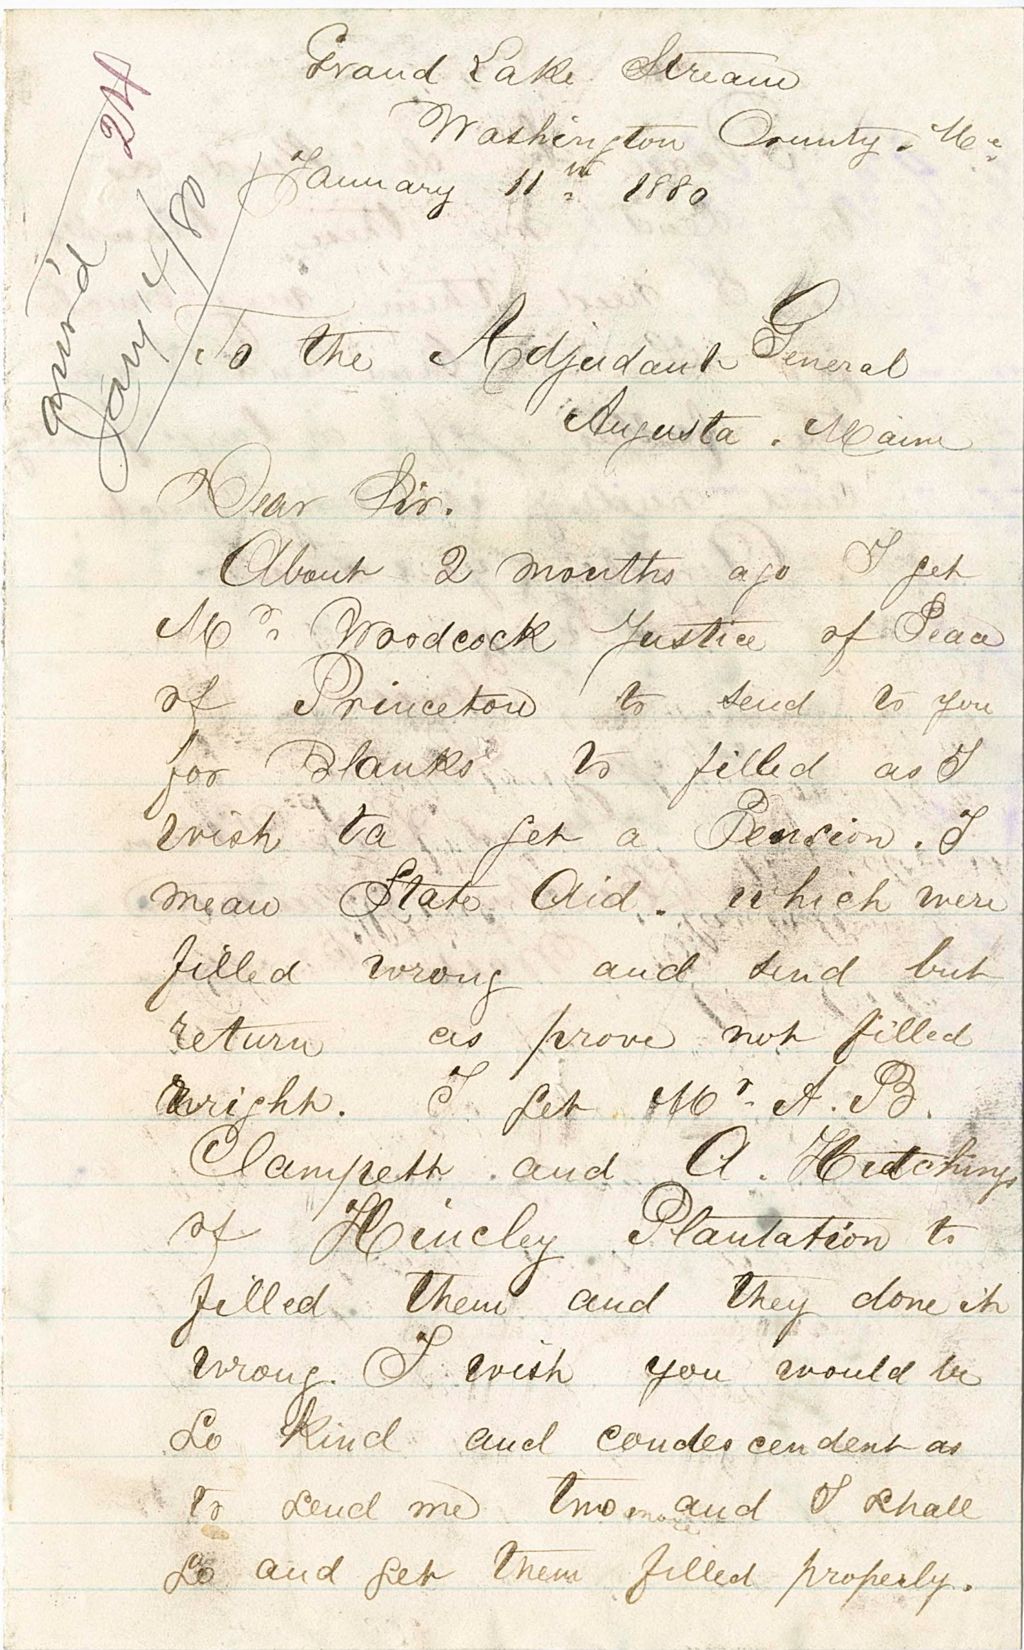 Grand Lake Stream
Washington County. Me
January 11th 1880
24
answ'd
Jany 14/80
To the Adjudant General
Augusta. Maine
Dear Sir.
About 2 months ago I get
Mr. Woodcock Justice of Peace
of Princeton to send to you
for Blanks to filled as I
wish ta get a Pension. I
mean State Aid. which were
filled wrong and send but
return as prove not filled
wright. I get Mr. A. B.
Clampett and A. Hutchings
of Hincley Plantation to
filled them and they done it
wrong. I wish you would be
So kind and condescendent as
to send me two more and I shall
go and get them filled properly.